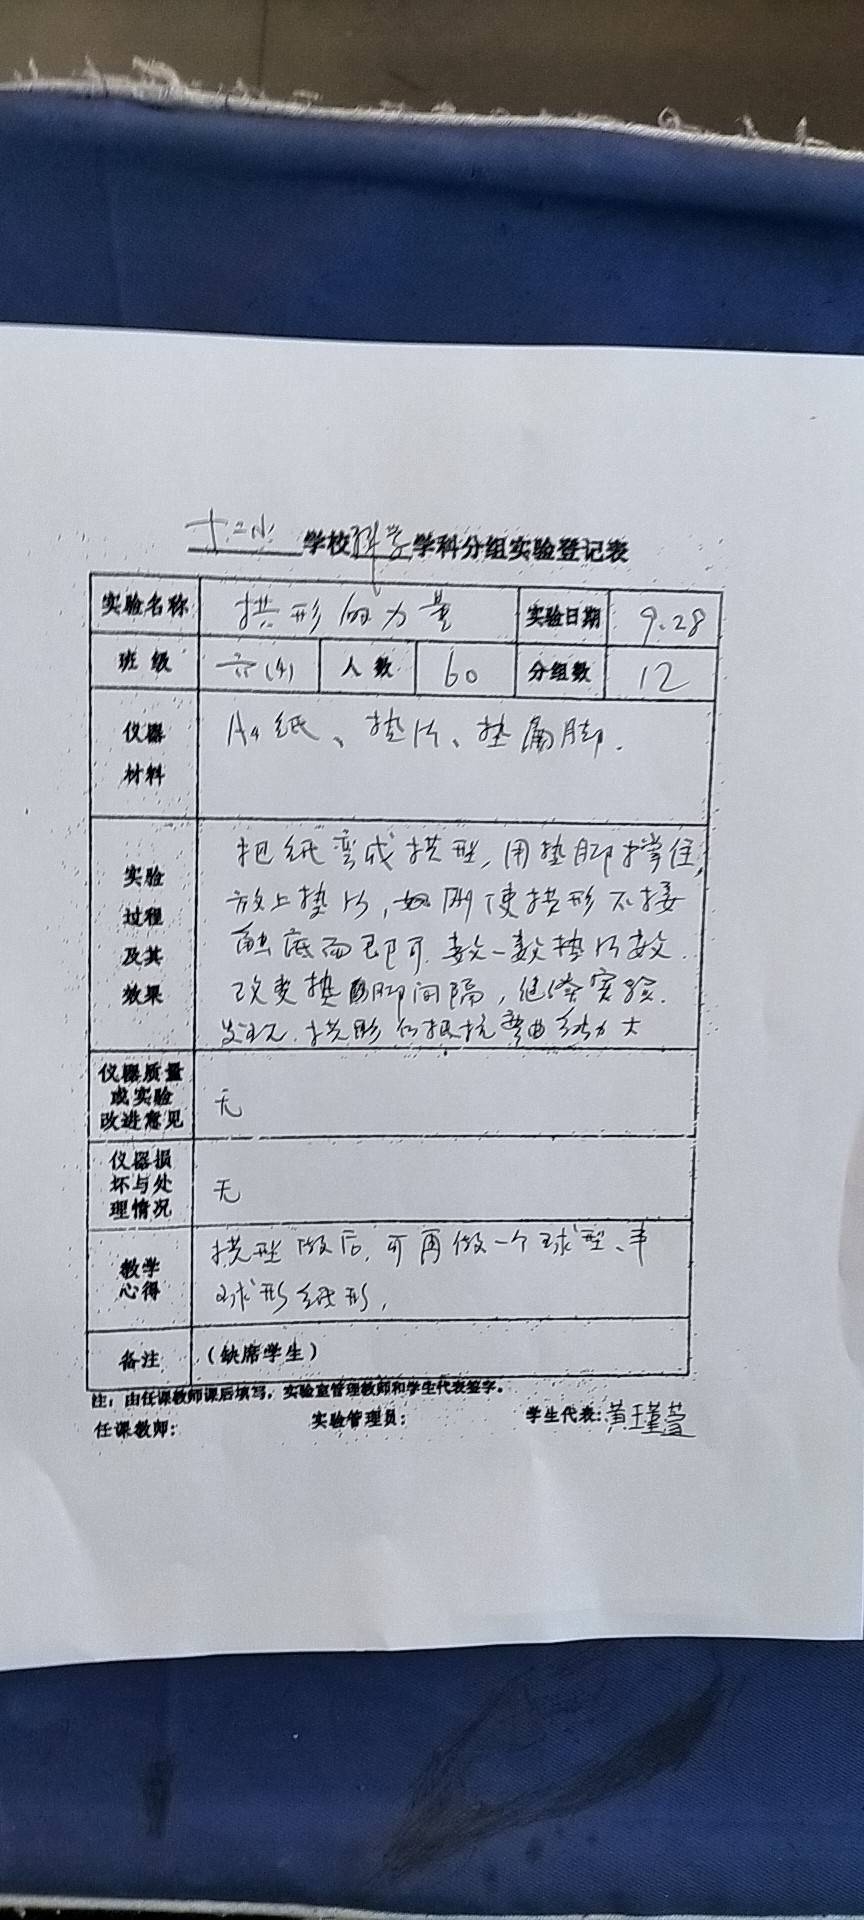 十二小学校科学学科分组实验登记表
实验名称 拱形的力量 实验日期 9.28
班级 六(4) 人数 60 分组数 12
仪器材料 A4纸、垫片、垫脚.
实验过程及其效果 把纸弯成拱型,用垫脚撑住,
放上垫片,刚使拱形不接
触底面即可.数一数垫片数.
改变垫脚间隔,继续实验.
发现.拱形的抵抗弯曲能力大
仪器质量或实验改进意见 无
仪器损坏与处理情况 无
教学心得 拱型做后,可再做一个球型、半
球形纸形,
备注 (缺席学生)
注:由任课教师课后填写,实验室管理教师和学生代表签字。
任课教师: 实验管理员: 学生代表:黄王堇萱